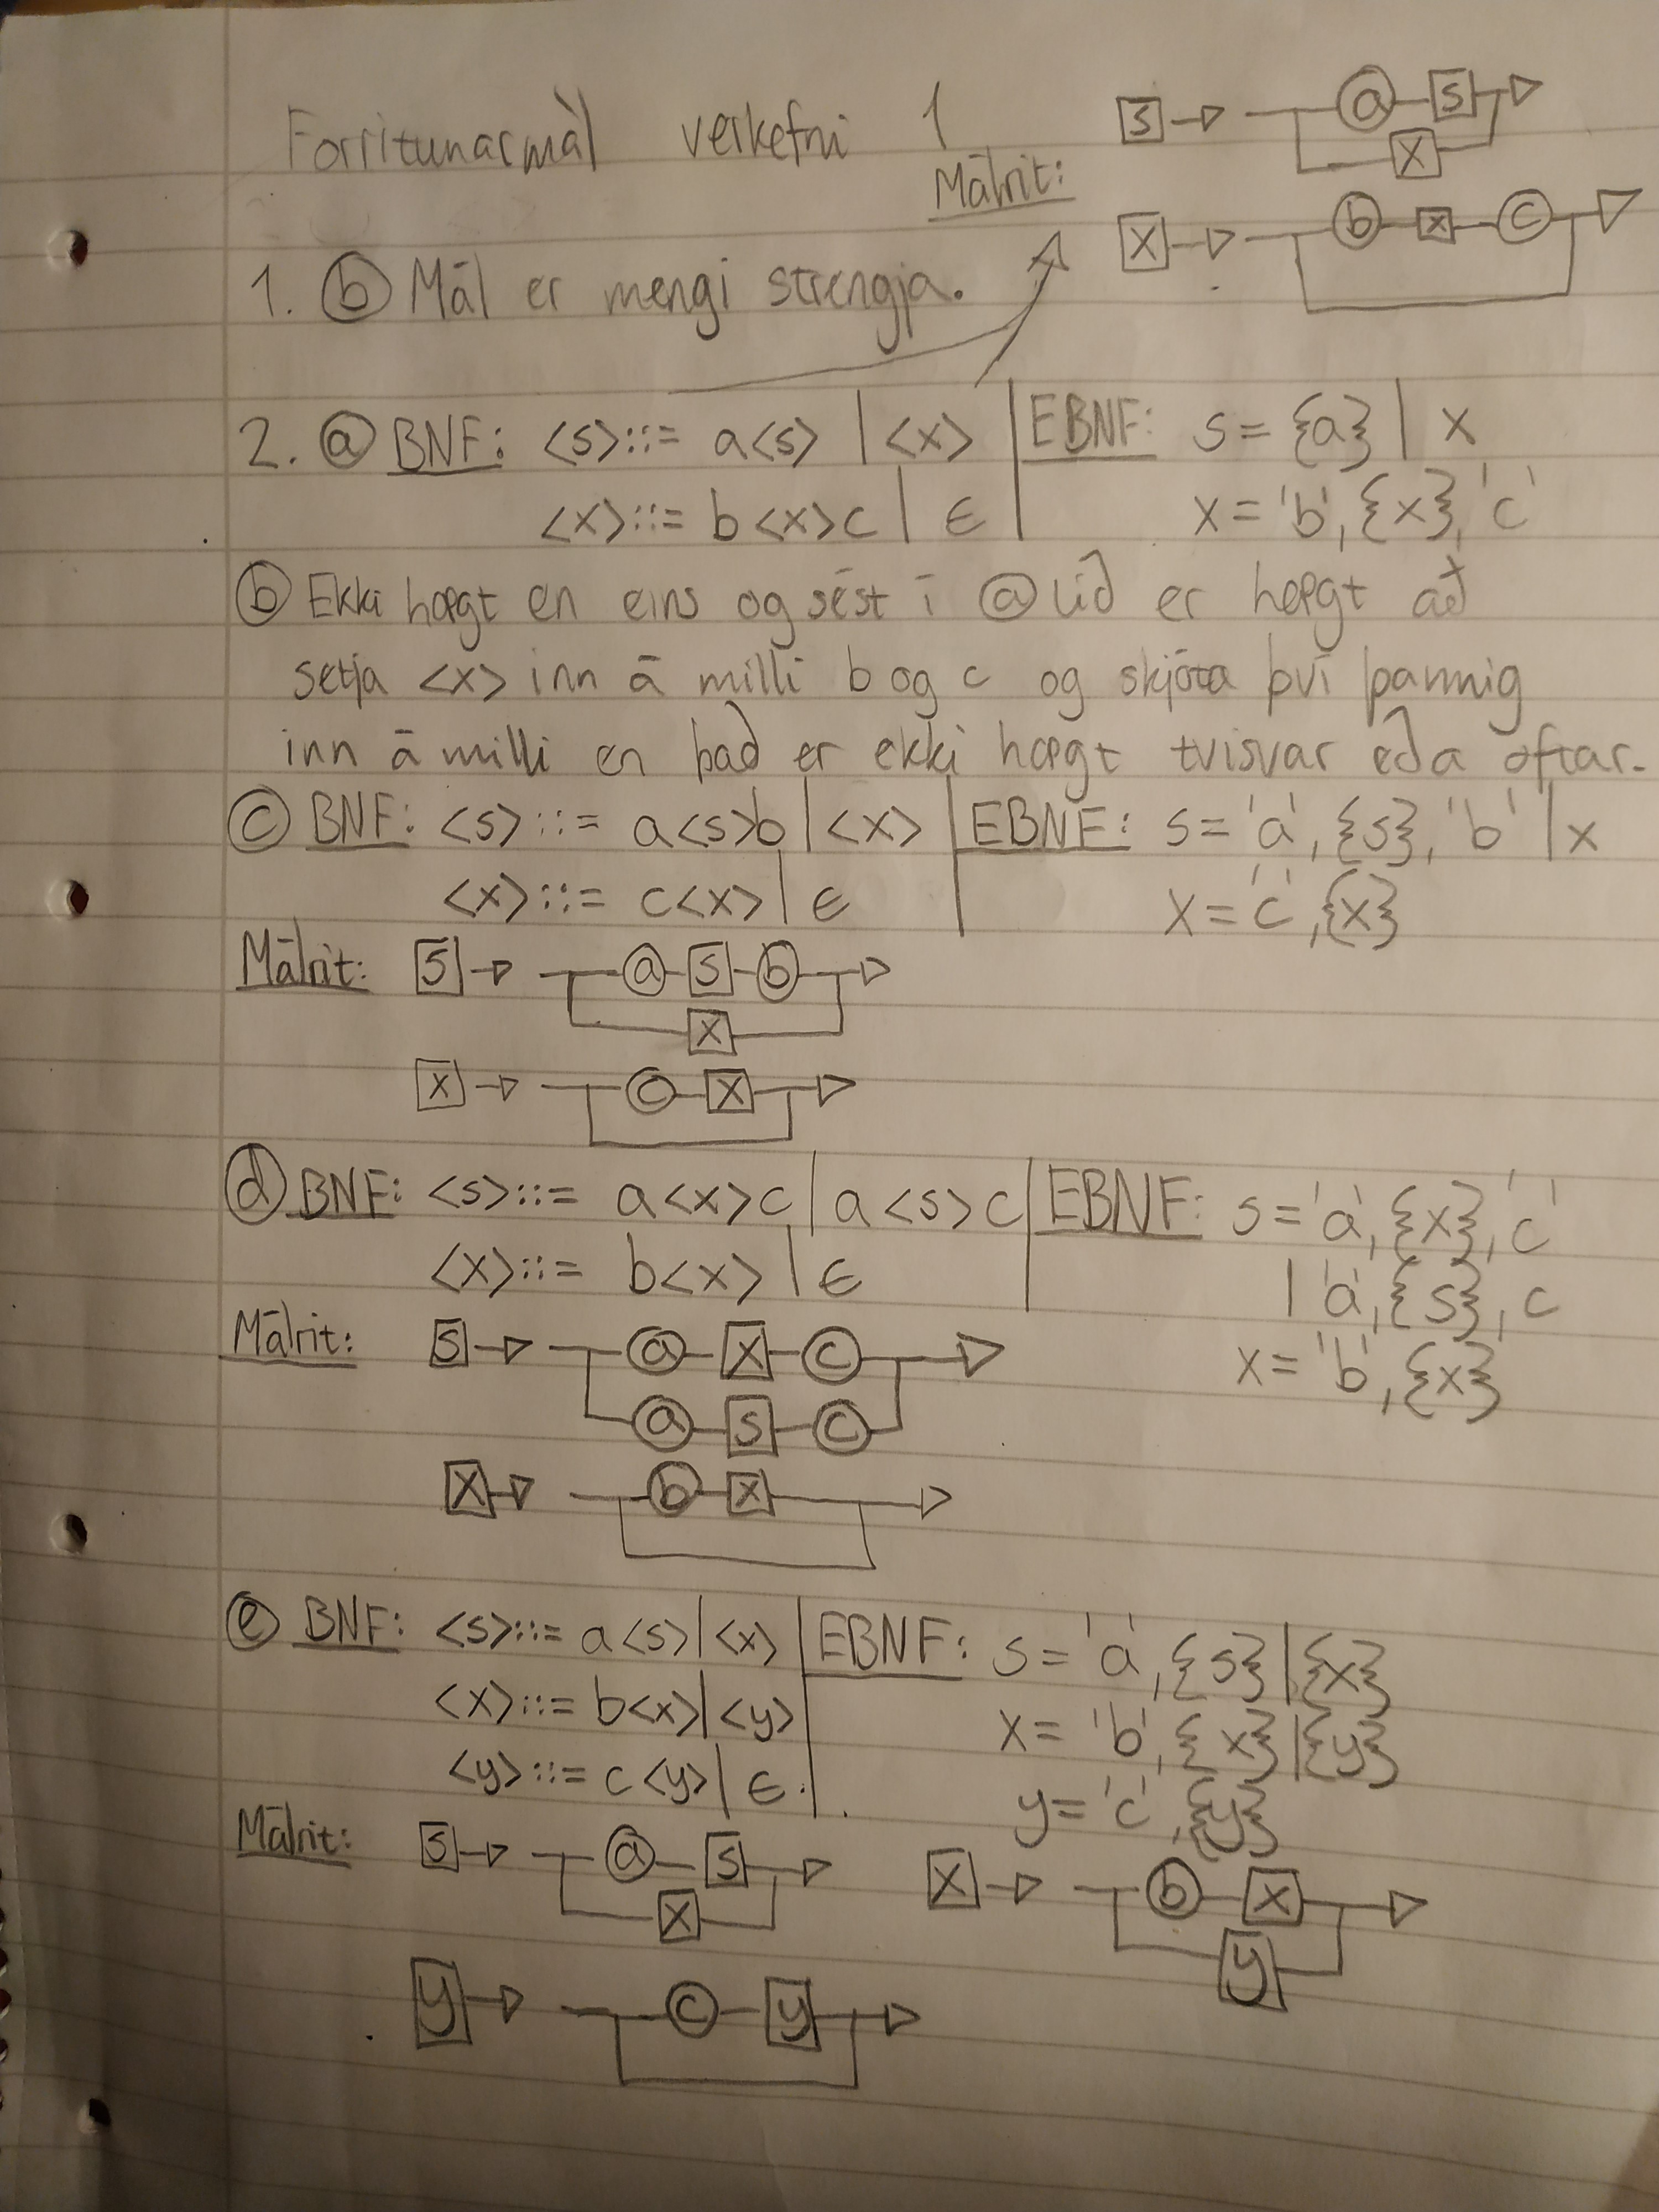 Forritunarmál verkefni 1
Málrit:
S → a S
X
X → b X c
1. b Mál er mengi strengja.
2. a BNF: <s>::= a<s> | <x> | EBNF: s = {a} | x
<x>::= b<x>c | ϵ | x = 'b', {x}, 'c'
b Ekki hægt en eins og sést í a lið er hægt að
setja <x> inn á milli b og c og skjóta því þannig
inn á milli en það er ekki hægt tvisvar eða oftar.
c BNF: <s>::= a<s>b | <x> | EBNF: s = 'a', {s}, 'b' | x
<x>::= c<x> | ϵ | x = 'c', {x}
Málrit: S → a S b
X
X → c X
d BNF: <s>::= a<x>c | a<s>c | EBNF: s = 'a', {x}, 'c'
<x>::= b<x> | ϵ | | 'a', {s}, c
x = 'b', {x}
Málrit: S → a X c
a S c
X → b X
e BNF: <s>::= a<s> | <x> | EBNF: s = 'a', {s} | {x}
<x>::= b<x> | <y> | x = 'b', {x} | {y}
<y>::= c<y> | ϵ | y = 'c', {y}
Málrit: S → a S
X
X → b X
y
y → c y